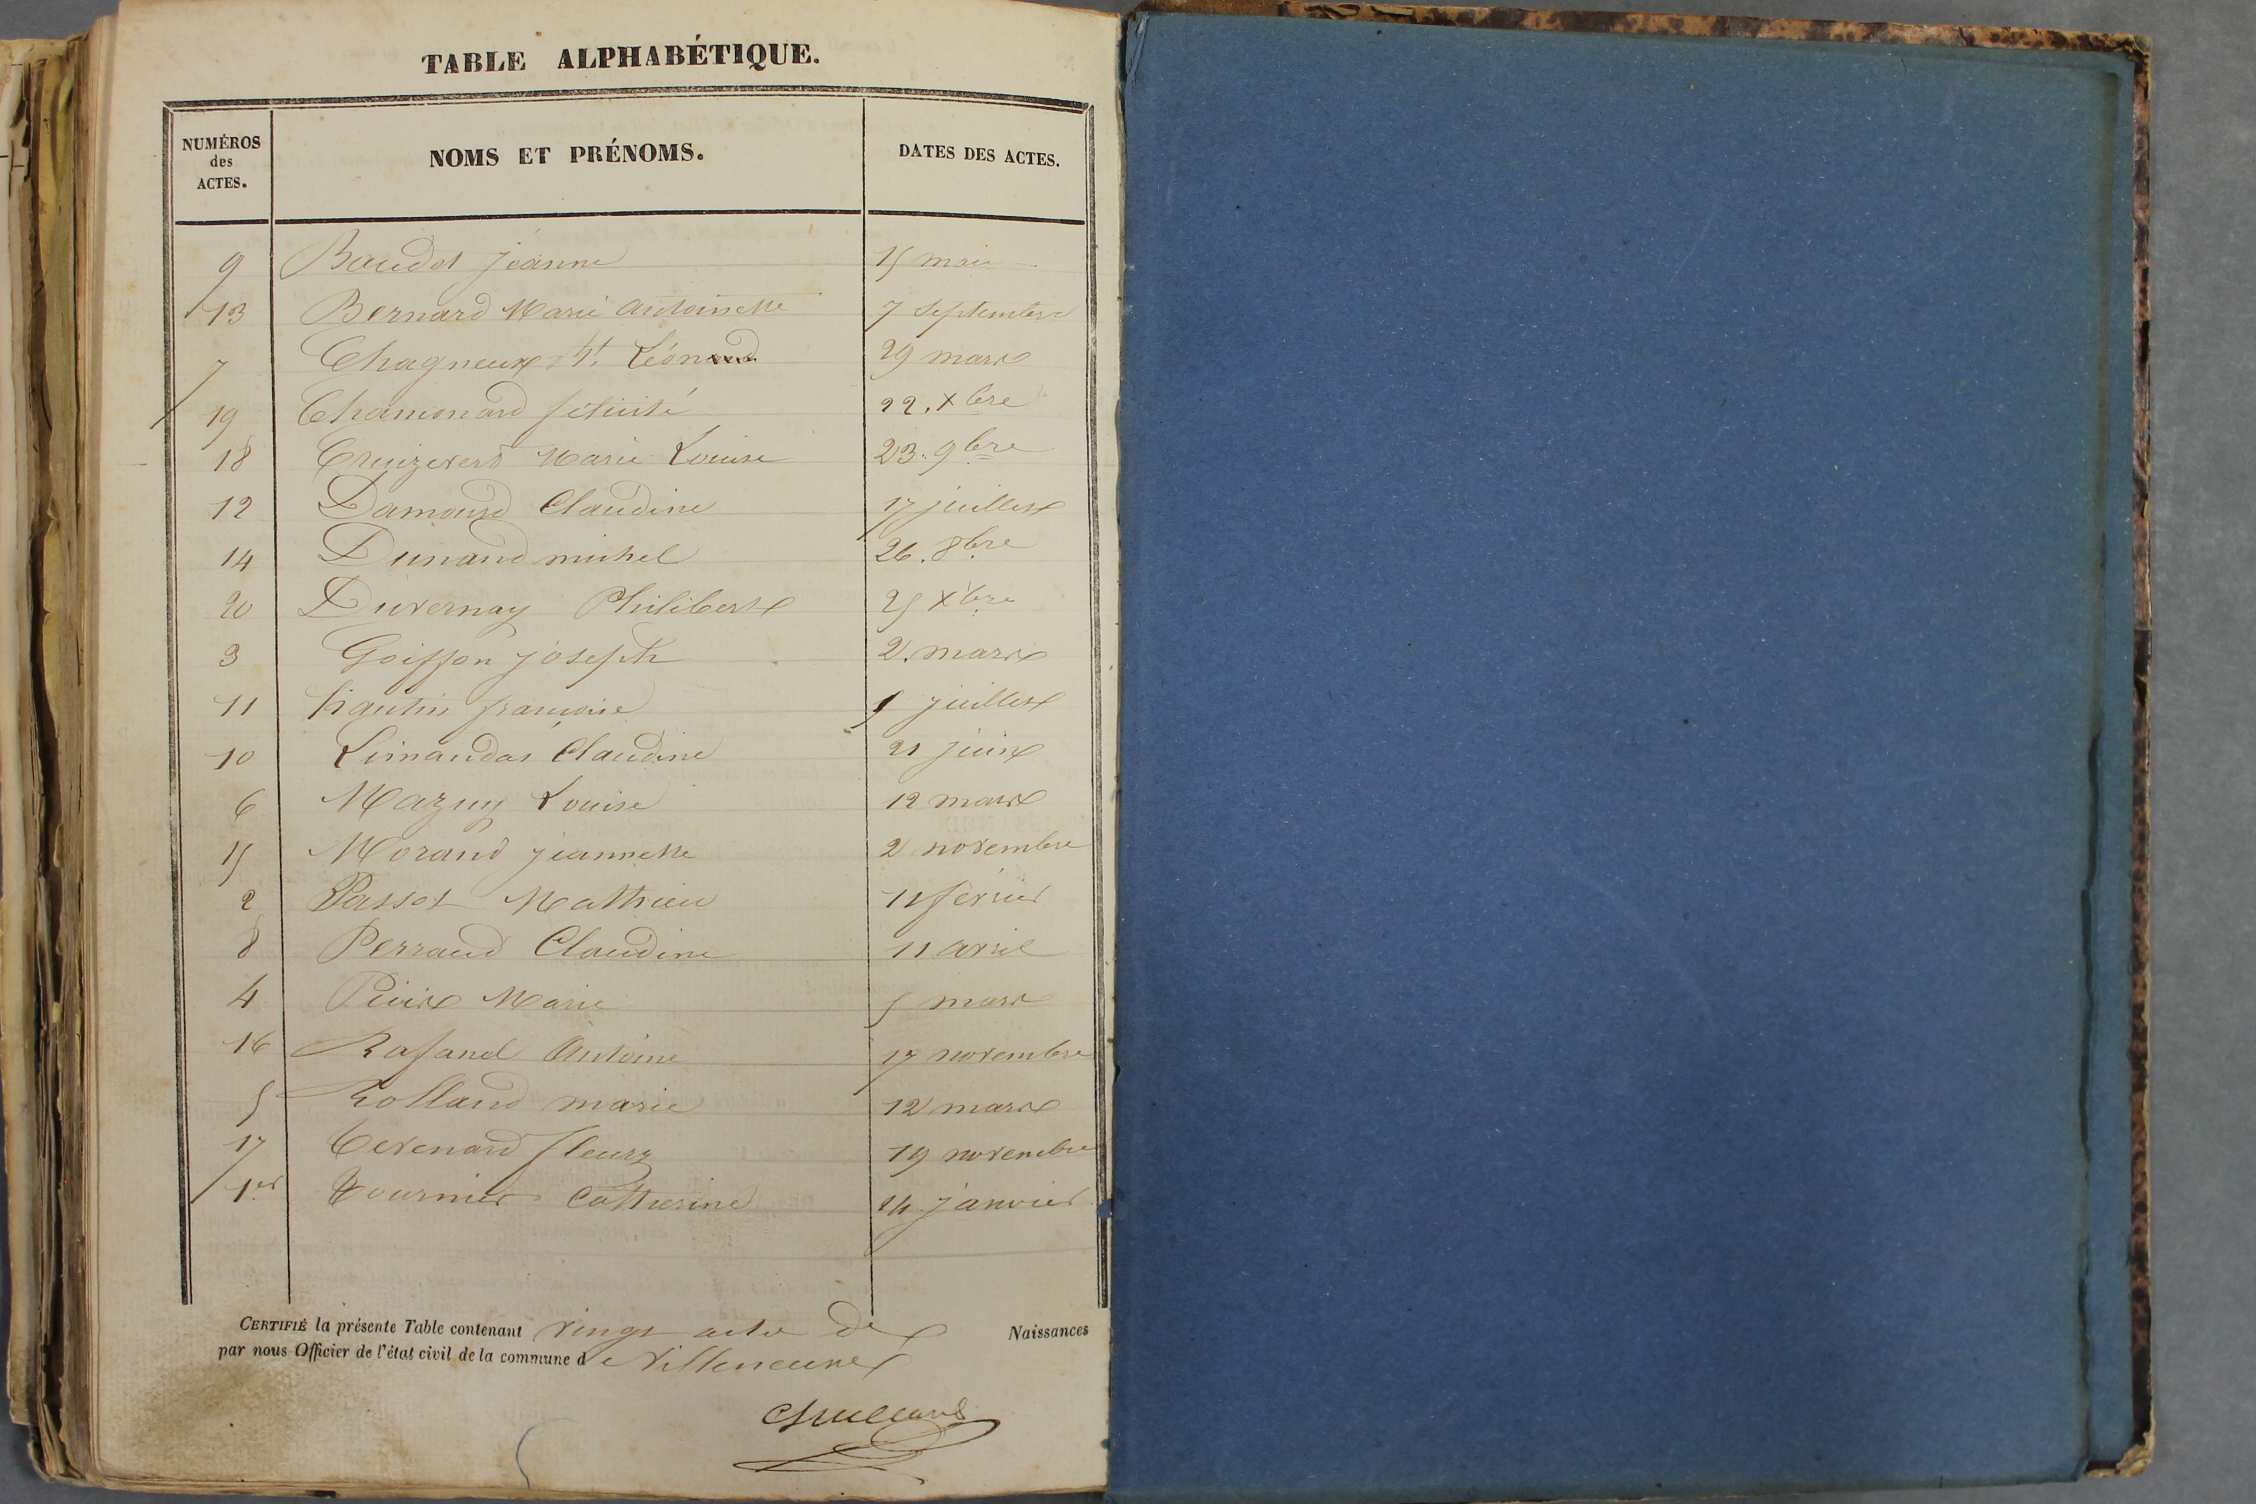 TABLE ALPHABÉTIQUE.
NUMÉROS des ACTES. NOMS ET PRÉNOMS. DATES DES ACTES.
9 Baudot jeanne 15 mai
13 Bernard Marie antoinette 7 Septembre
7 Chagneux Léonard 29 mars
19 Chamonard félicité 22. Xbre
18 Marie Louise 23. 9bre
12 Damond Claudine 17 juillet
14 Dunand michel 26. 8bre
20 Duvernay Philibert 25 Xbre
3 Goiffon joseph 2. mars
11 francoise juillet
10 Limandas Claudine 21 juin
6 Mazuy Louise 12 mars
15 Morand jeannette 2 novembre
2 Passot Mathieu 11 fevrier
8 Perraud Claudine 11 avril
4 Marie 5 mars
16 Antoine 17 novembre
5 Rolland marie 12 mars
17 Tevenard fleury 19 novembre
1er Tournier Catherine 14 janvier
CERTIFIÉ la présente Table contenant vingt acte de Naissances
par nous Officier de l'état civil de la commune de Villeneuve